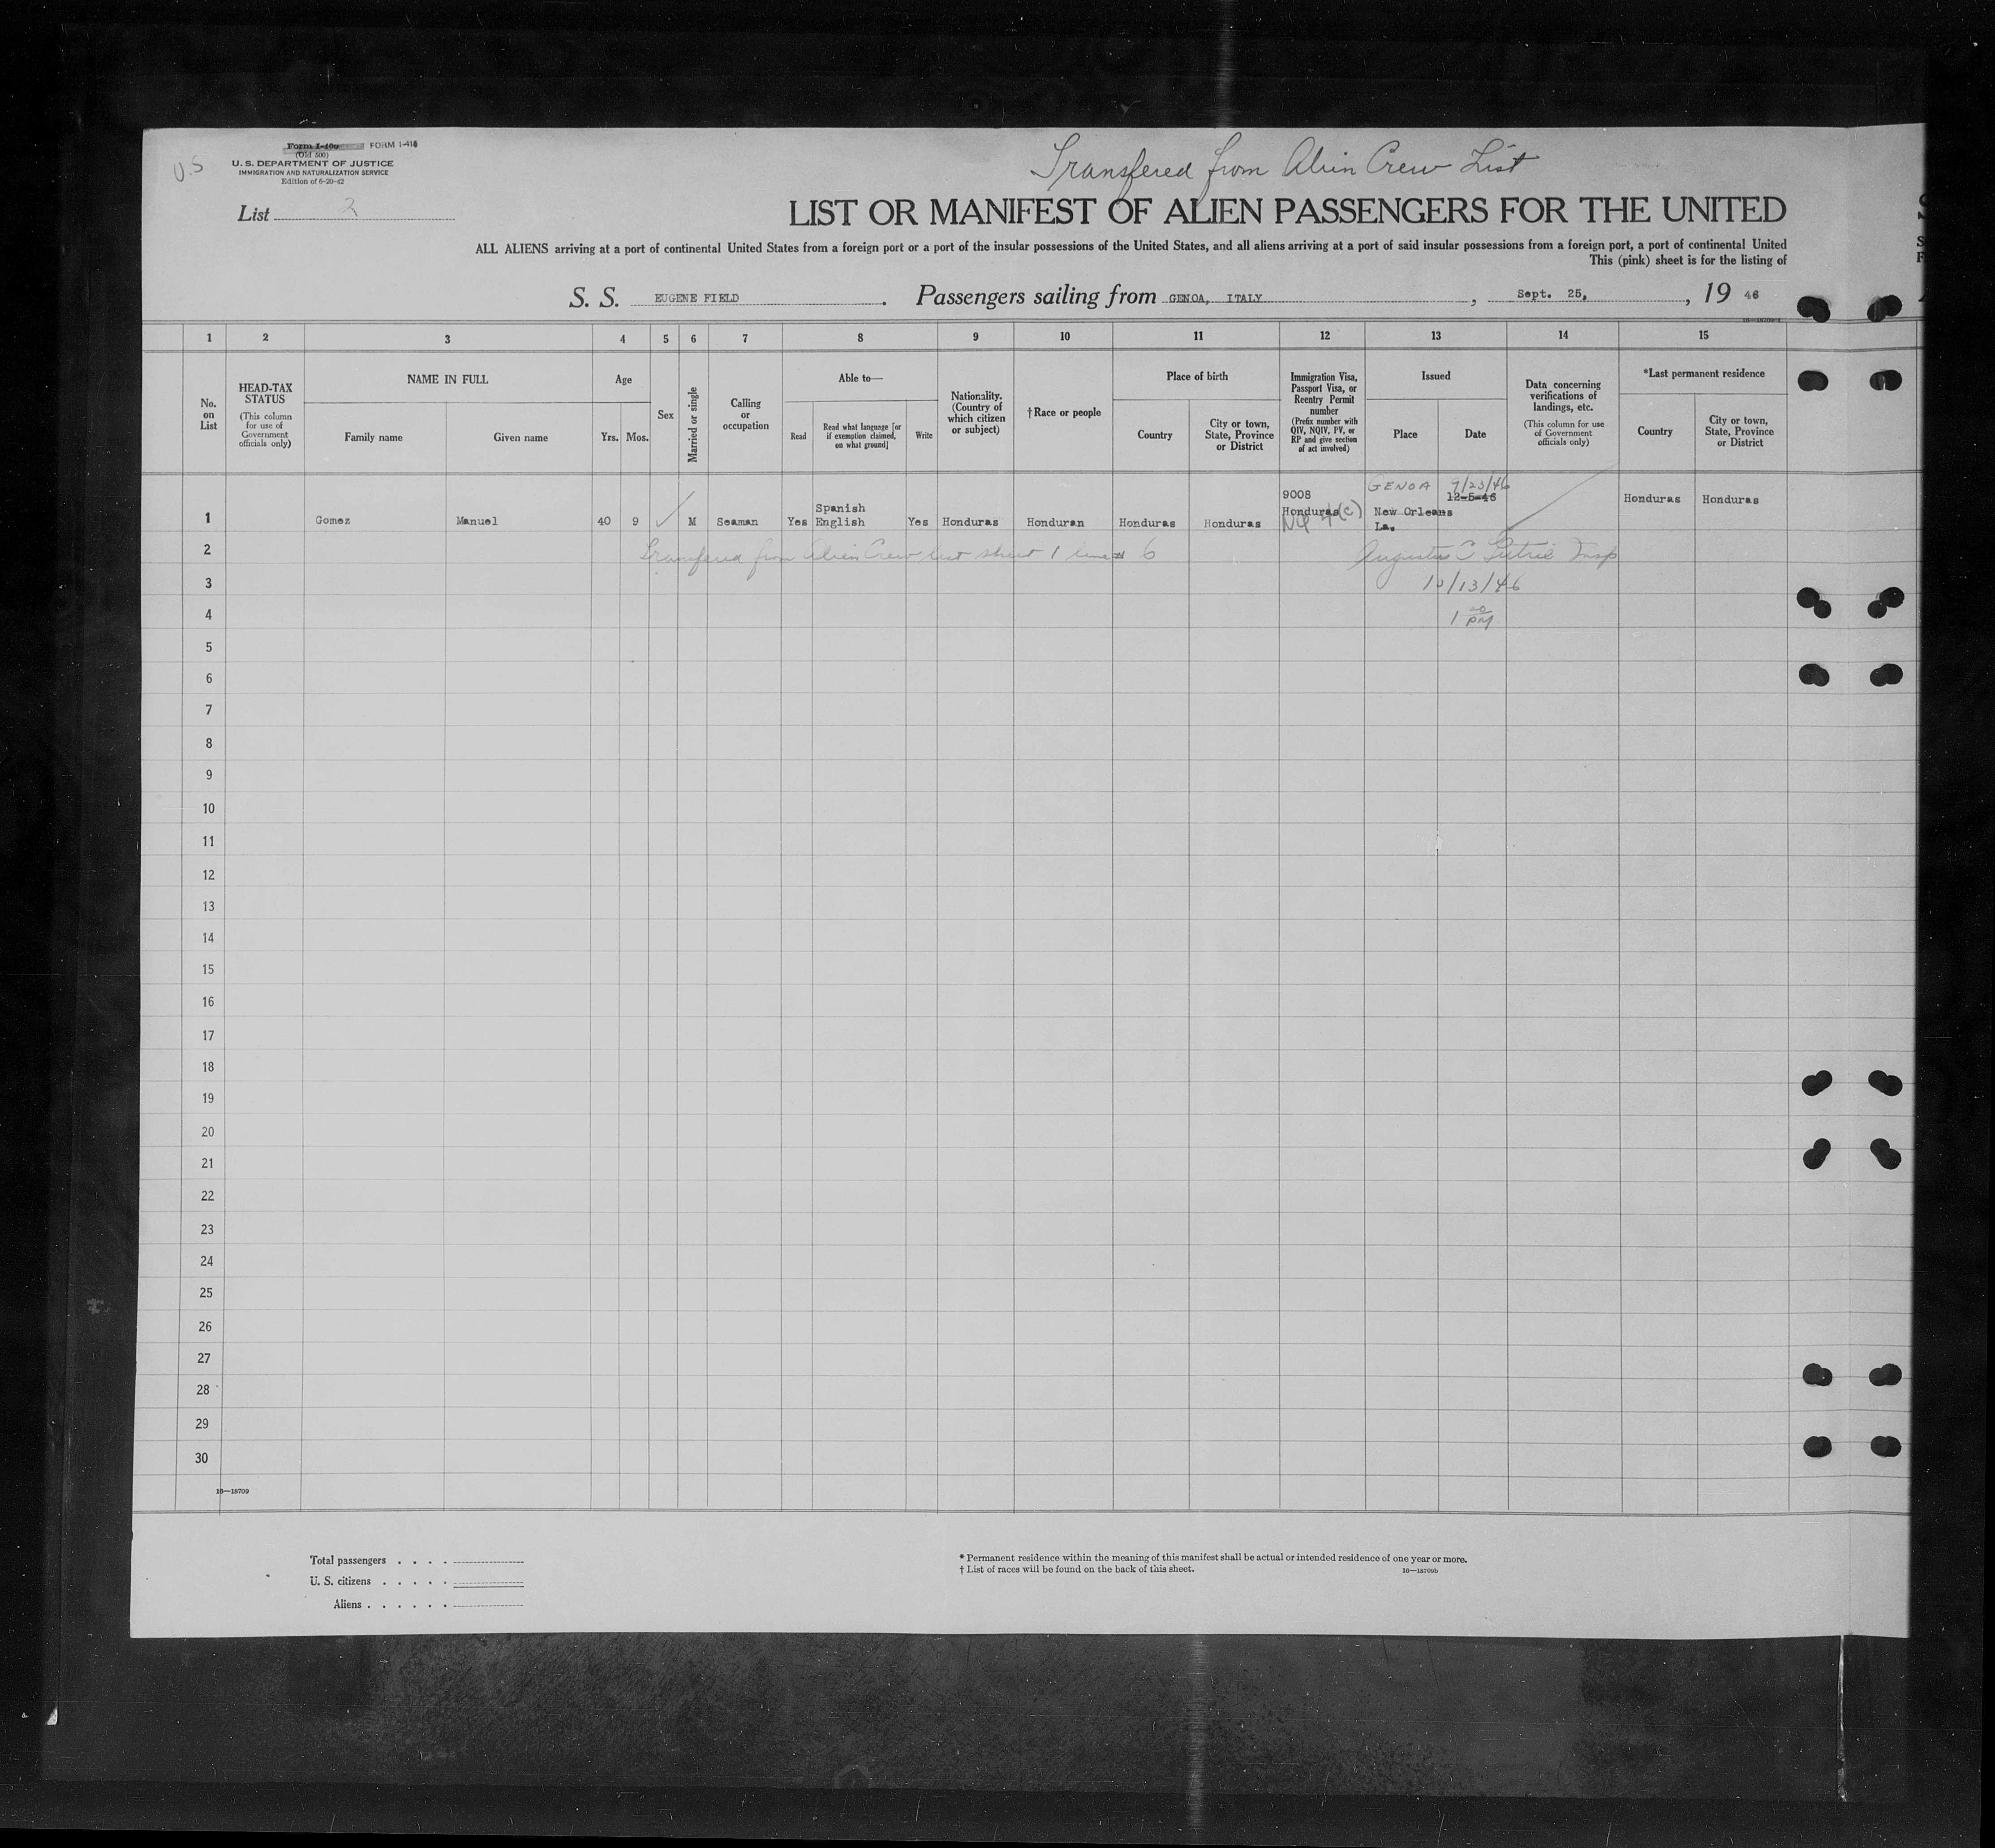 U.S
Form I-400 FORM I-416
(Old 500)
U. S. DEPARTMENT OF JUSTICE
IMMIGRATION AND NATURALIZATION SERVICE
Edition of 6-20-42
List 2
Transfered from Alien Crew List
LIST OR MANIFEST OF ALIEN PASSENGERS FOR THE UNITED
ALL ALIENS arriving at a port of continental United States from a foreign port or a port of the insular possessions of the United States, and all aliens arriving at a port of said insular possessions from a foreign port, a port of continental United
This (pink) sheet is for the listing of
S. S. EUGENE FIELD. Passengers sailing from GENOA, ITALY, Sept. 25, , 19 46
1 2 3 4 5 6 7 8 9 10 11 12 13 14 15
No. on List
HEAD-TAX STATUS
(This column for use of Government officials only)
NAME IN FULL
Family name
Given name
Age
Yrs.
Mos.
Sex
Married or single
Calling or occupation
Able to—
Read
Read what language [or if exemption claimed, on what ground]
Write
Nationality. (Country of which citizen or subject)
†Race or people
Place of birth
Country
City or town, State, Province or District
Immigration Visa, Passport Visa, or Reentry Permit number
(Prefix number with QIV, NQIV, PV, or RP and give section of act involved)
Issued
Place
Date
Data concerning verifications of landings, etc.
(This column for use of Government officials only)
*Last permanent residence
Country
City or town, State, Province or District
GENOA 7/23/46
9008 12-5-46 Honduras Honduras
Spanish Honduras New Orleans
1 Gomez Manuel 40 9 M Seaman Yes English Yes Honduras Honduran Honduras Honduras 4(c) La.
2 Transfered from Alien Crew list sheet 1 line # 6 Augustus C Insp
3 10/13/46
4 1 00 PM
5
6
7
8
9
10
11
12
13
14
15
16
17
18
19
20
21
22
23
24
25
26
27
28
29
30
16—18709
Total passengers . . . .
U. S. citizens . . . . .
Aliens . . . . . .
* Permanent residence within the meaning of this manifest shall be actual or intended residence of one year or more.
† List of races will be found on the back of this sheet. 16—18709b